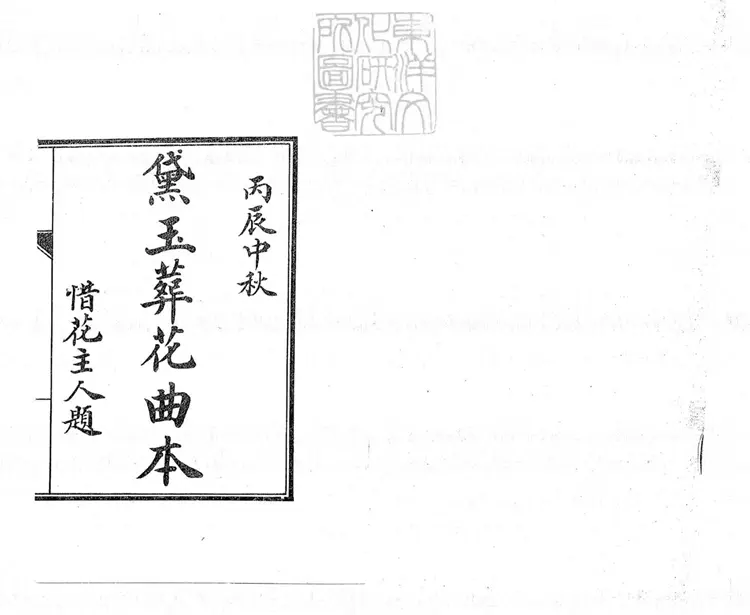 東洋文
化研究
所圖書
丙辰中秋
黛玉葬花曲本
惜花主人題